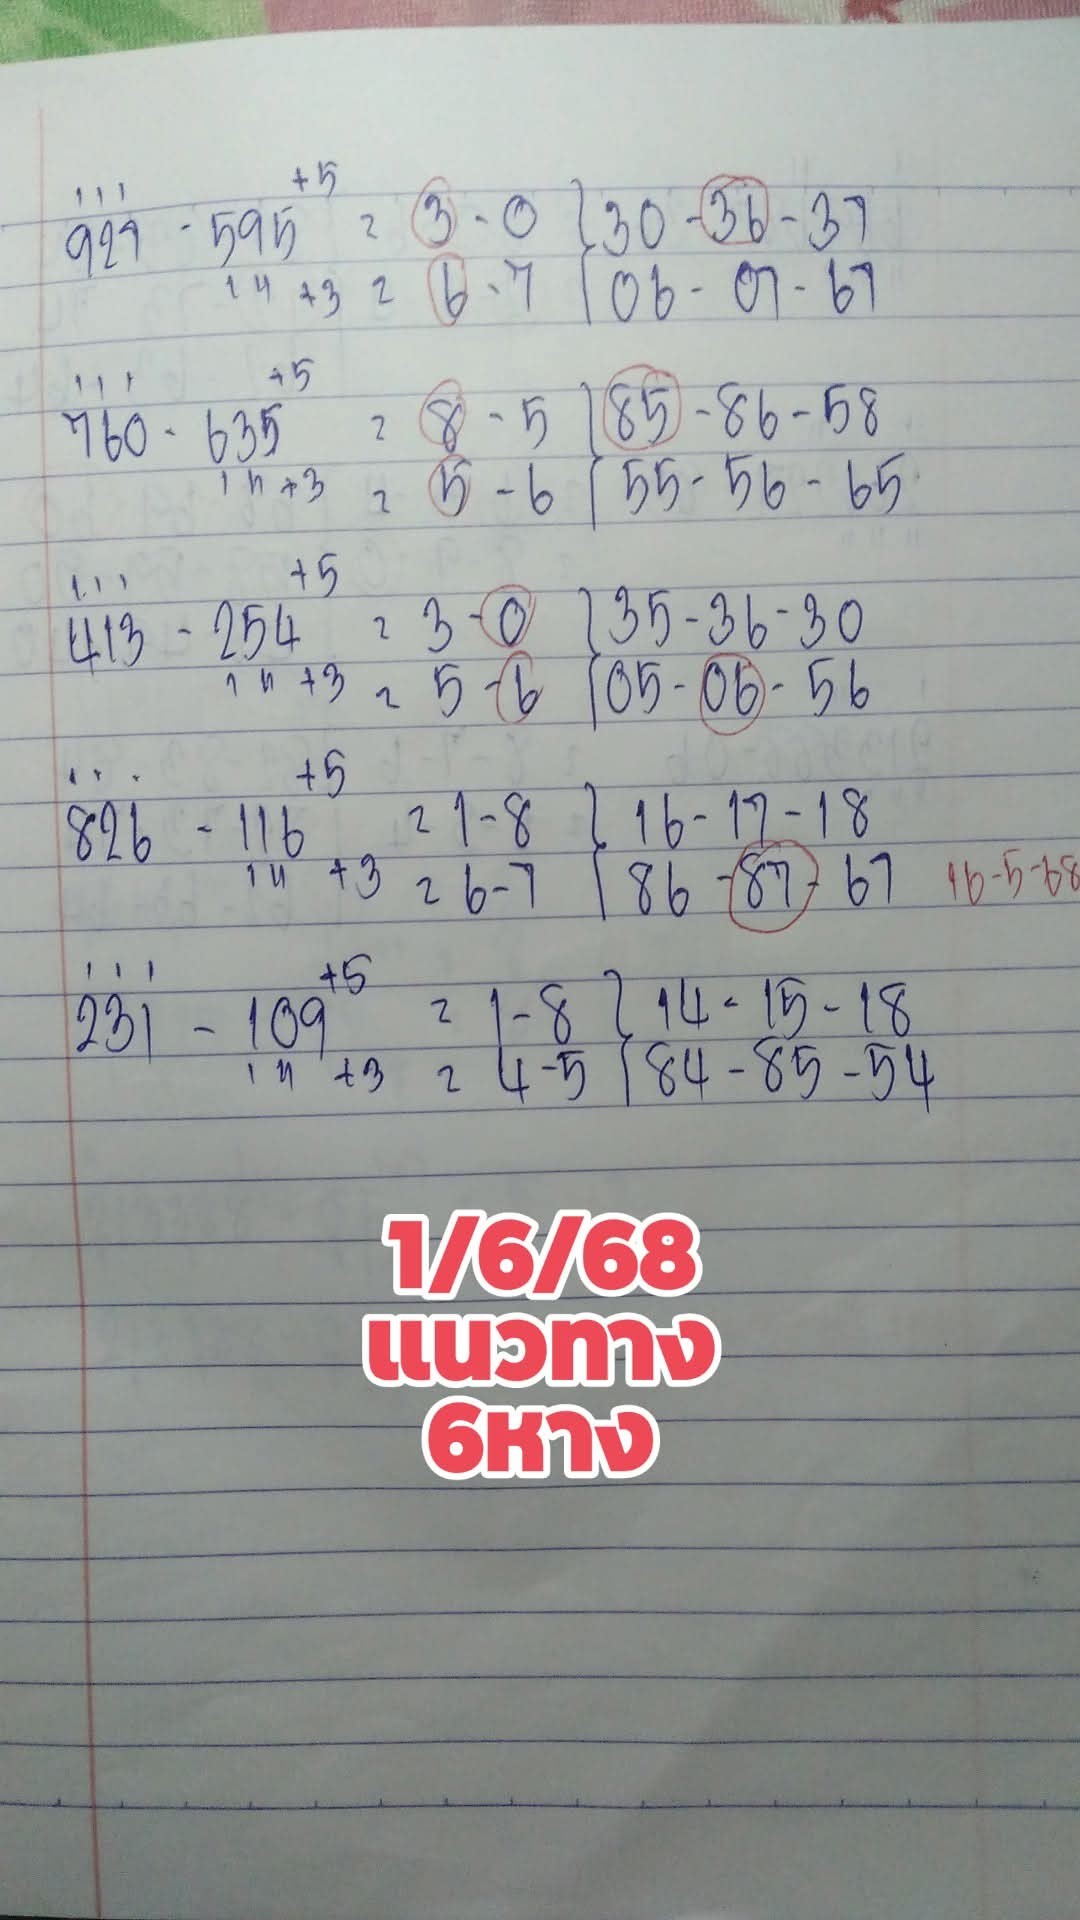 ı ı ı +5
929 - 595 = 3 - 0 } 30 - 36 - 37
+3 = 6 - 7 { 06 - 07 - 67
ı ı ı +5
760 - 635 = 8 - 5 } 85 - 86 - 58
+3 = 5 - 6 { 55 - 56 - 65
ı ı ı +5
413 - 254 = 3 - 0 } 35 - 36 - 30
+3 = 5 - 6 { 05 - 06 - 56
+5
826 - 116 = 1 - 8 } 16 - 17 - 18
+3 = 6 - 7 { 86 - 87 - 67 16-5-68
ı ı ı +5
231 - 109 = 1 - 8 } 14 - 15 - 18
+3 = 4 - 5 { 84 - 85 - 54
1/6/68
แนวทาง
6หาง